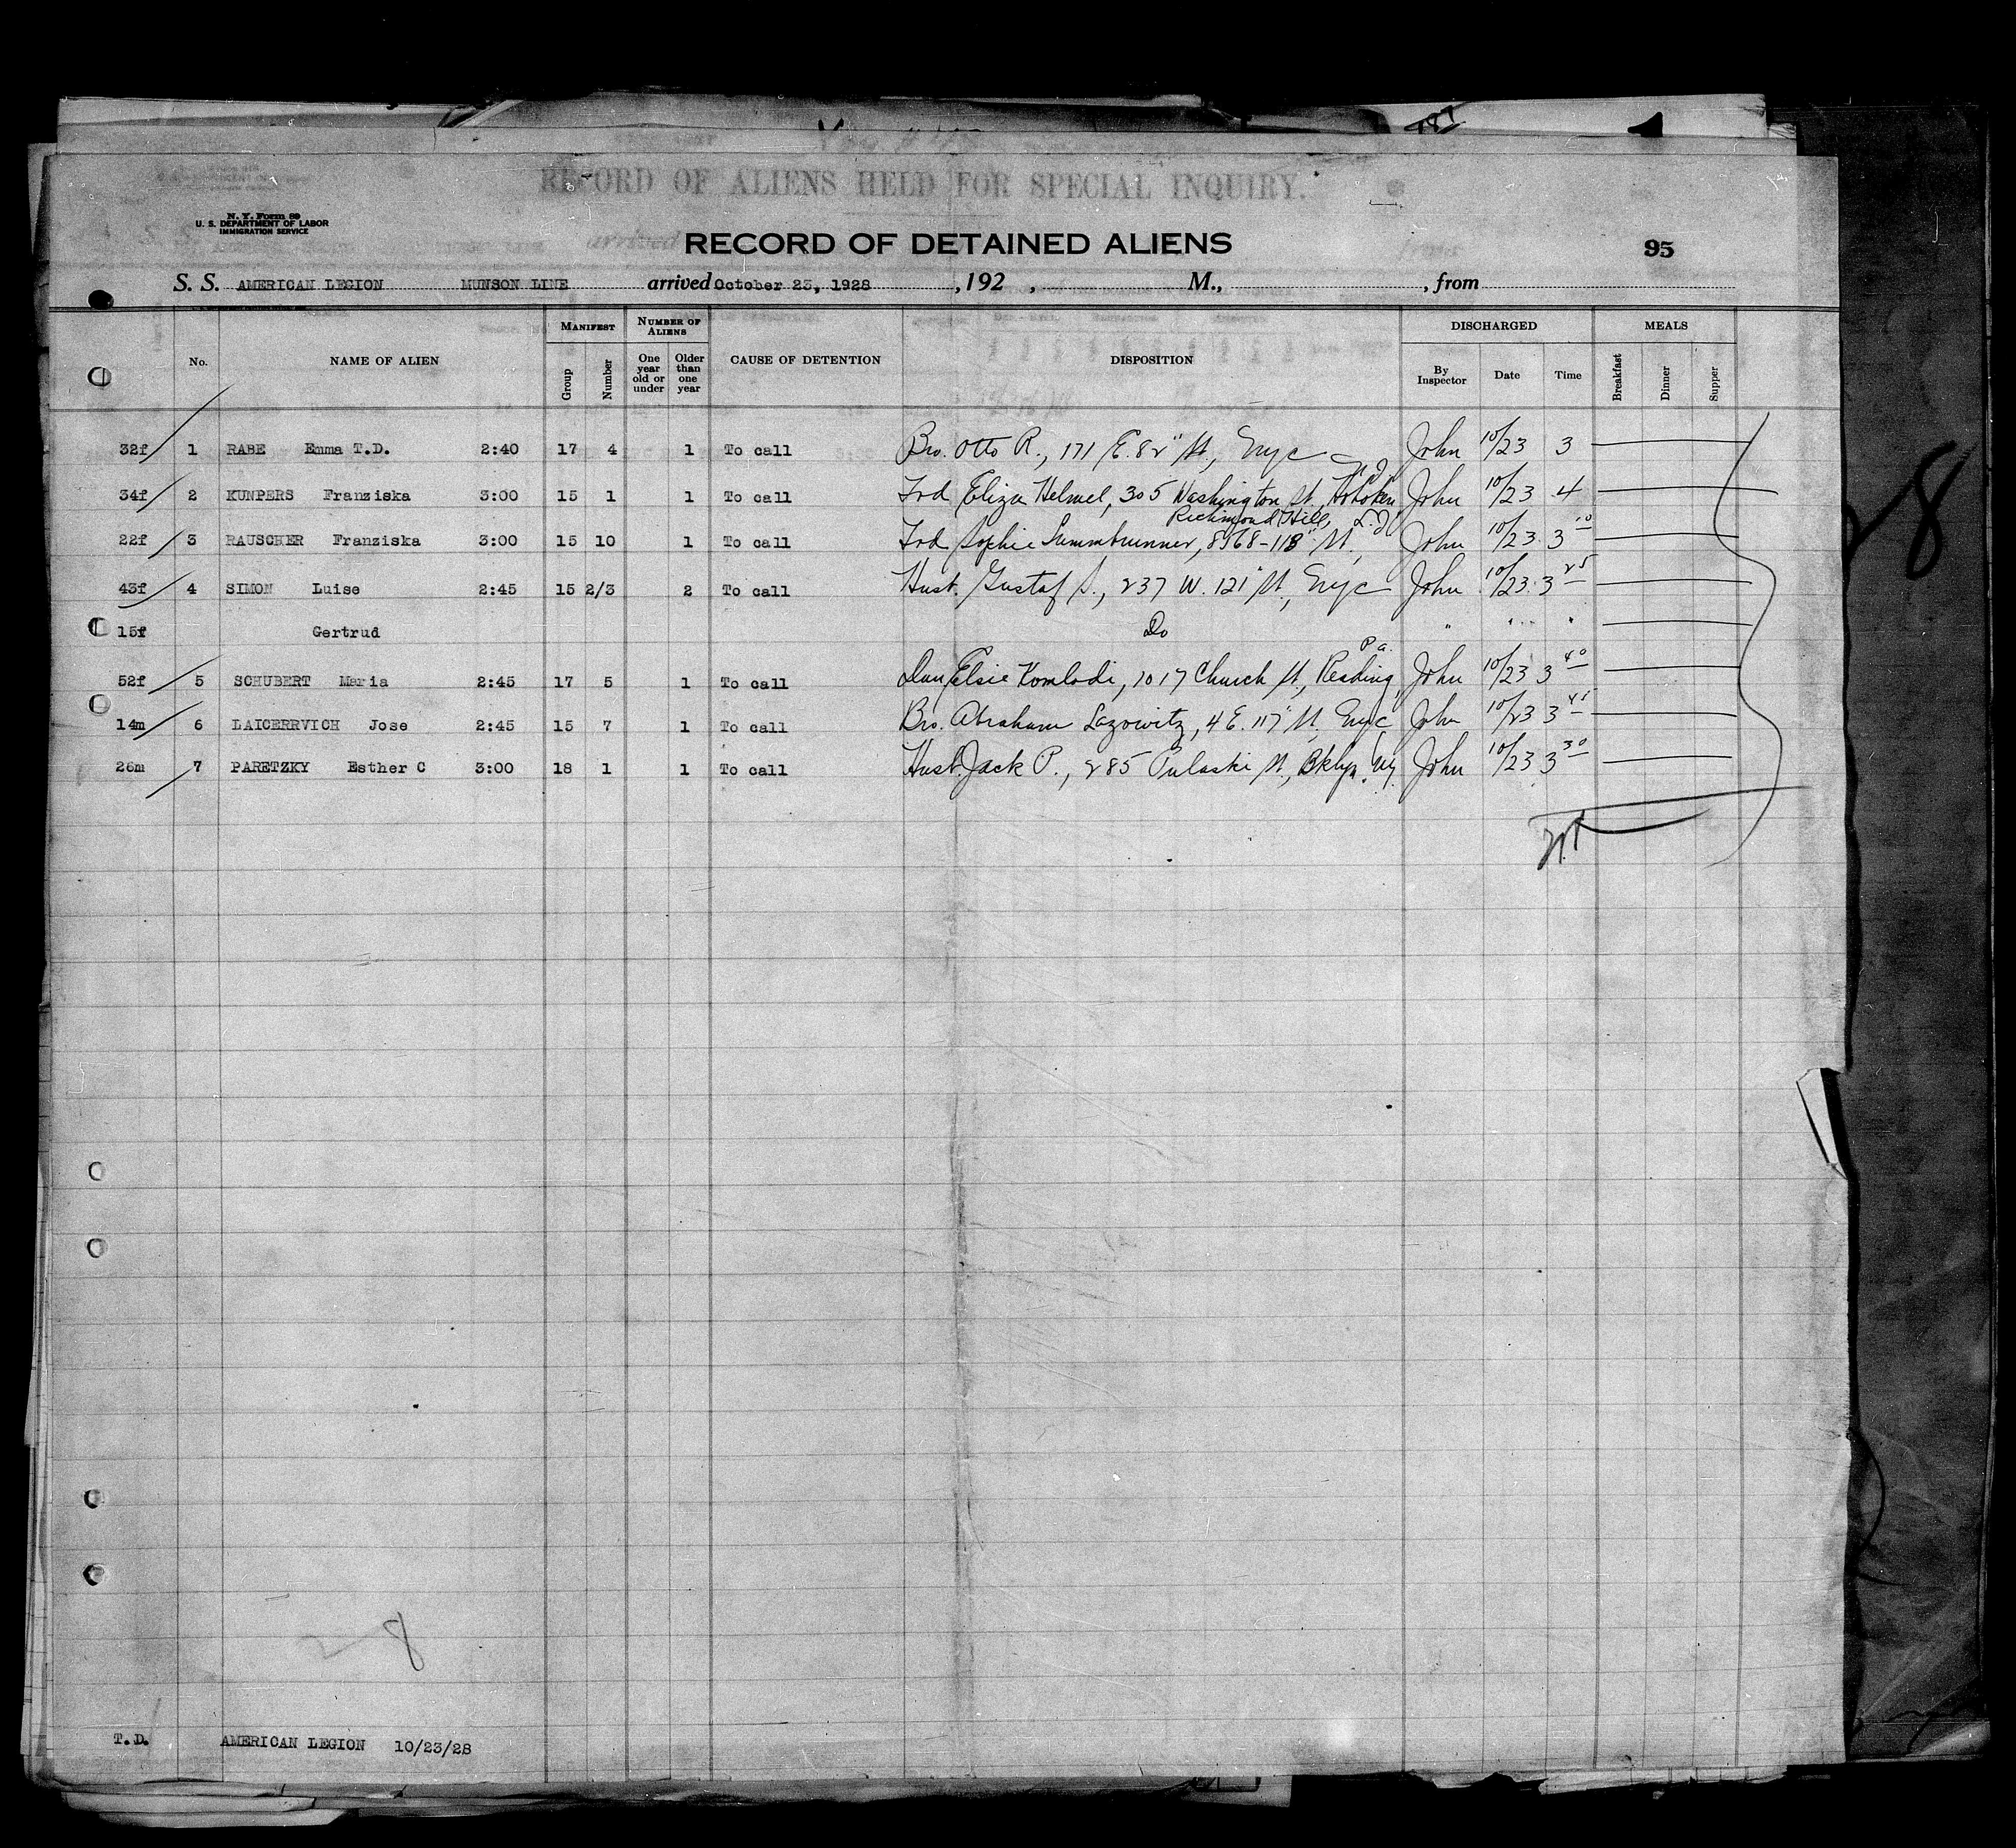 RECORD OF ALIENS HELD FOR SPECIAL INQUIRY.
N. Y. Form 89
U. S. DEPARTMENT OF LABOR
IMMIGRATION SERVICE
RECORD OF DETAINED ALIENS
95
S. S. AMERICAN LEGION MUNSON LINE arrived October 23, 1928 , 192 , M., , from
No. NAME OF ALIEN MANIFEST Group Number NUMBER OF ALIENS One year old or under Older than one year CAUSE OF DETENTION DISPOSITION DISCHARGED By Inspector Date Time MEALS Breakfast Dinner Supper
32f 1 RABE Emma T.D. 2:40 17 4 1 To call Bro. Otto R., 171 E. 82" St., Nyc John 10/23 3
N.J.
34f 2 KUNPERS Franziska 3:00 15 1 1 To call Frd Eliza Helmel, 305 Washington St., Hoboken John 10/23 4
Richmond Hill, L.I.
22f 3 RAUSCHER Franziska 3:00 15 10 1 To call Frd Sophie 8968-118" St., John 10/23 3 10
43f 4 SIMON Luise 2:45 15 2/3 2 To call Husb. Gustaf S., 237 W. 121" St., Nyc John 10/23 3 25
15f Gertrud Do " " "
Pa.
52f 5 SCHUBERT Maria 2:45 17 5 1 To call Dau Elsie Komlodi, 1017 Church St., Reading John 10/23 3 40
14m 6 LAICERRVICH Jose 2:45 15 7 1 To call Bro. Abraham Lazowitz, 4 E. 117" St. Nyc John 10/23 3 45
26m 7 PARETZKY Esther C 3:00 18 1 1 To call Husb. Jack P., 285 Pulaski St., Bklyn. Ny. John 10/23 3 30
T.D. AMERICAN LEGION 10/23/28